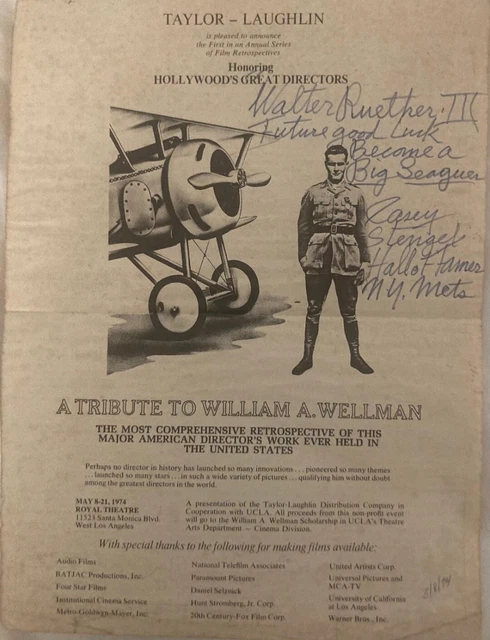 TAYLOR – LAUGHLIN
is pleased to announce
the First in an Annual Series
of Film Retrospectives
Honoring
HOLLYWOOD'S GREAT DIRECTORS
Walter Ruether III
Future good Luck
Become a
Big Leaguer
Casey
Stengel
Hall of Famer
N.Y. Mets
A TRIBUTE TO WILLIAM A. WELLMAN
THE MOST COMPREHENSIVE RETROSPECTIVE OF THIS
MAJOR AMERICAN DIRECTOR'S WORK EVER HELD IN
THE UNITED STATES
Perhaps no director in history has launched so many innovations . . . pioneered so many themes
. . . launched so many stars . . . in such a wide variety of pictures . . . qualifying him without doubt
among the greatest directors in the world.
MAY 8-21, 1974
ROYAL THEATRE
11523 Santa Monica Blvd.
West Los Angeles
A presentation of the Taylor-Laughlin Distribution Company in
Cooperation with UCLA. All proceeds from this non-profit event
will go to the William A. Wellman Scholarship in UCLA's Theatre
Arts Department — Cinema Division.
With special thanks to the following for making films available:
Audio Films
BATJAC Productions, Inc.
Four Star Films
Institutional Cinema Service
Metro-Goldwyn-Mayer, Inc.
National Telefilm Associates
Paramount Pictures
Daniel Selznick
Hunt Stromberg, Jr. Corp.
20th Century-Fox Film Corp.
United Artists Corp.
Universal Pictures and
MCA-TV
University of California
at Los Angeles
Warner Bros., Inc.